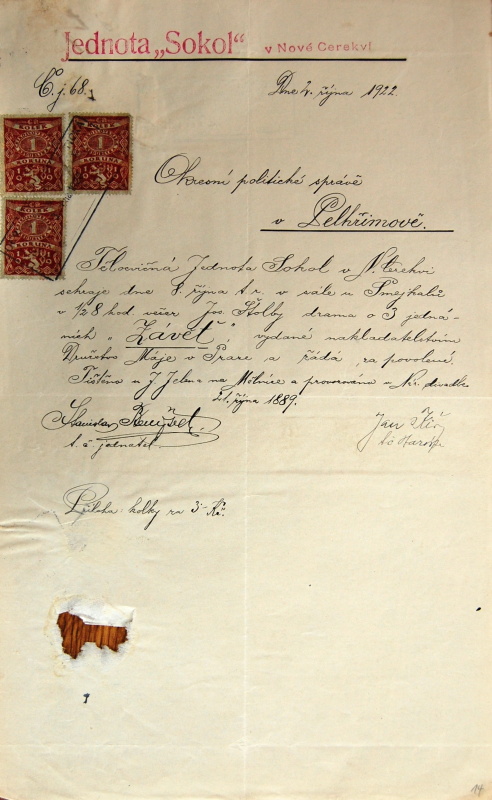 Jednota „Sokol" v Nové Cerekvi
Č. j. 68.
Dne 2. října 1922
KOLEK
1
KORUNA
KOLEK
1
KORUNA
KOLEK
1
KORUNA
Okresní politické správě
v Pelhřimově.
Tělocvičná Jednota Sokol v N. Cerekvi
sehraje dne 8. října t. r. v sále u Smejkalů
v 1/2 8 hod večer Jos. Štolby drama o 3 jedná-
ních „Závěť", vydané nakladatelstvím
Družstva Máje v Praze a žádá za povolení.
Tištěno u J. Jelena na Mělníce a provozováno v Nár. divadle
října 1889.
Stanislav
t. č. jednatel.
Jan
t. č. starosta
Příloha: kolky za 3 Kč.
14